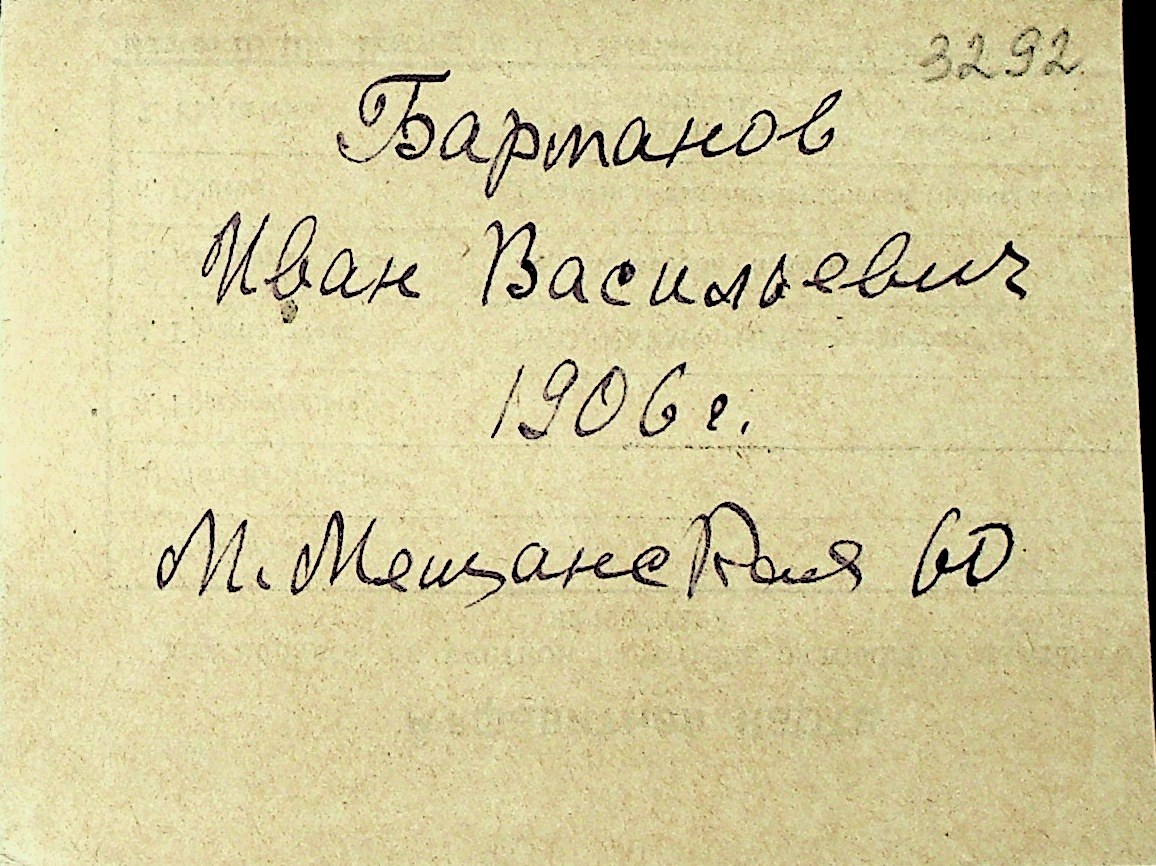 3292
Бартанов
Иван Васильевич
1906 г.
М. Мещанская 60